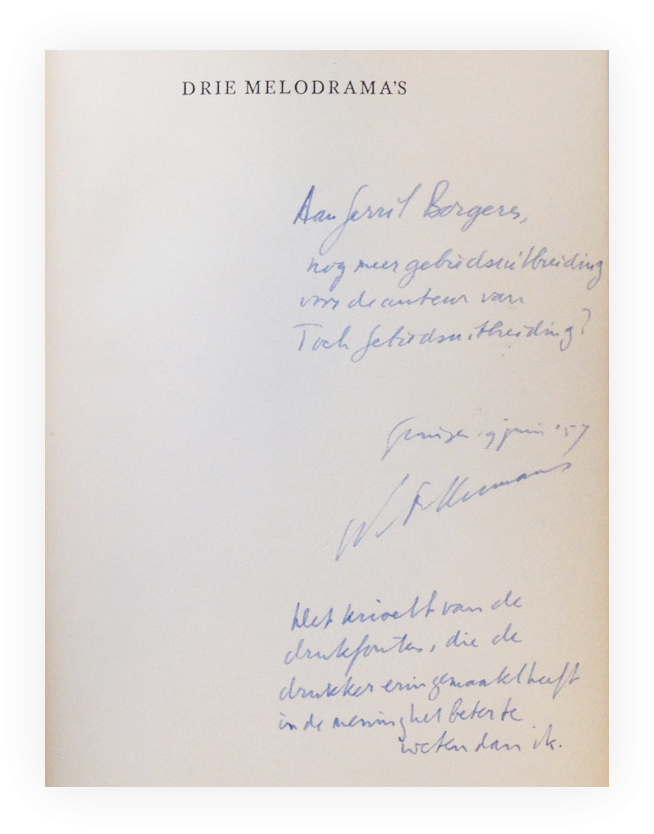 DRIE MELODRAMA'S
Aan Gerrit Borgers,
nog meer gebiedsuitbreiding
voor de auteur van
Toch Gebiedsuitbreiding?
juni '57
W F Hermans
Het krioelt van de
drukfouten, die de
drukker erin gemaakt heeft
in de mening het beter te
weten dan ik.